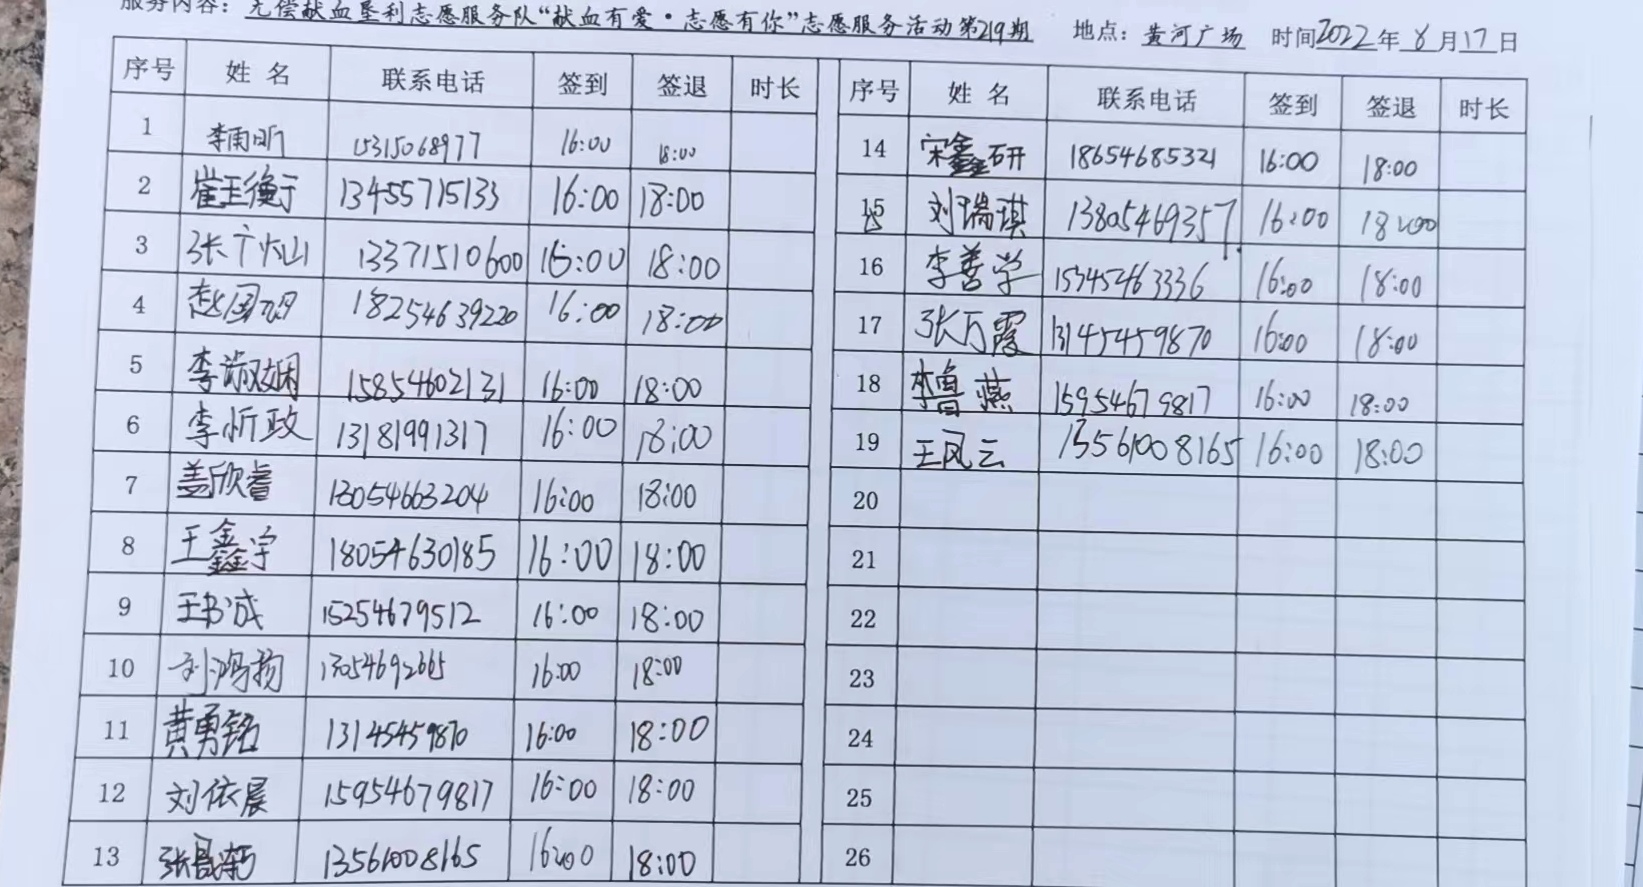 服务内容：无偿献血垦利志愿服务队“献血有爱·志愿有你”志愿服务活动第219期 地点：黄河广场 时间2022年8月17日
序号 姓名 联系电话 签到 签退 时长 序号 姓名 联系电话 签到 签退 时长
1 李雨昕 15315068977 16:00 18:00 14 宋鑫研 18654685321 16:00 18:00
2 崔玉衡 13455715133 16:00 18:00 15 刘瑞琪 13805469357 16:00 18:00
3 张 山 13371510600 16:00 18:00 16 李善学 15345463336 16:00 18:00
4 赵国 18254639220 16:00 18:00 17 张万霞 13145459870 16:00 18:00
5 李淑娴 15854602131 16:00 18:00 18 李鲁燕 15954679817 16:00 18:00
6 李忻政 13181991317 16:00 18:00 19 王凤云 13561008165 16:00 18:00
7 盖欣睿 13054663204 16:00 18:00 20
8 王鑫宇 18054630185 16:00 18:00 21
9 王书成 15254679512 16:00 18:00 22
10 刘鸿扬 13054692665 16:00 18:00 23
11 黄勇铭 13145459870 16:00 18:00 24
12 刘依晨 15954679817 16:00 18:00 25
13 张 13561008165 16:00 18:00 26